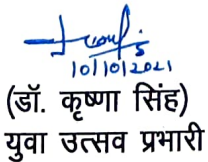 10/10/2021
(डॉ. कृष्णा सिंह)
युवा उत्सव प्रभारी